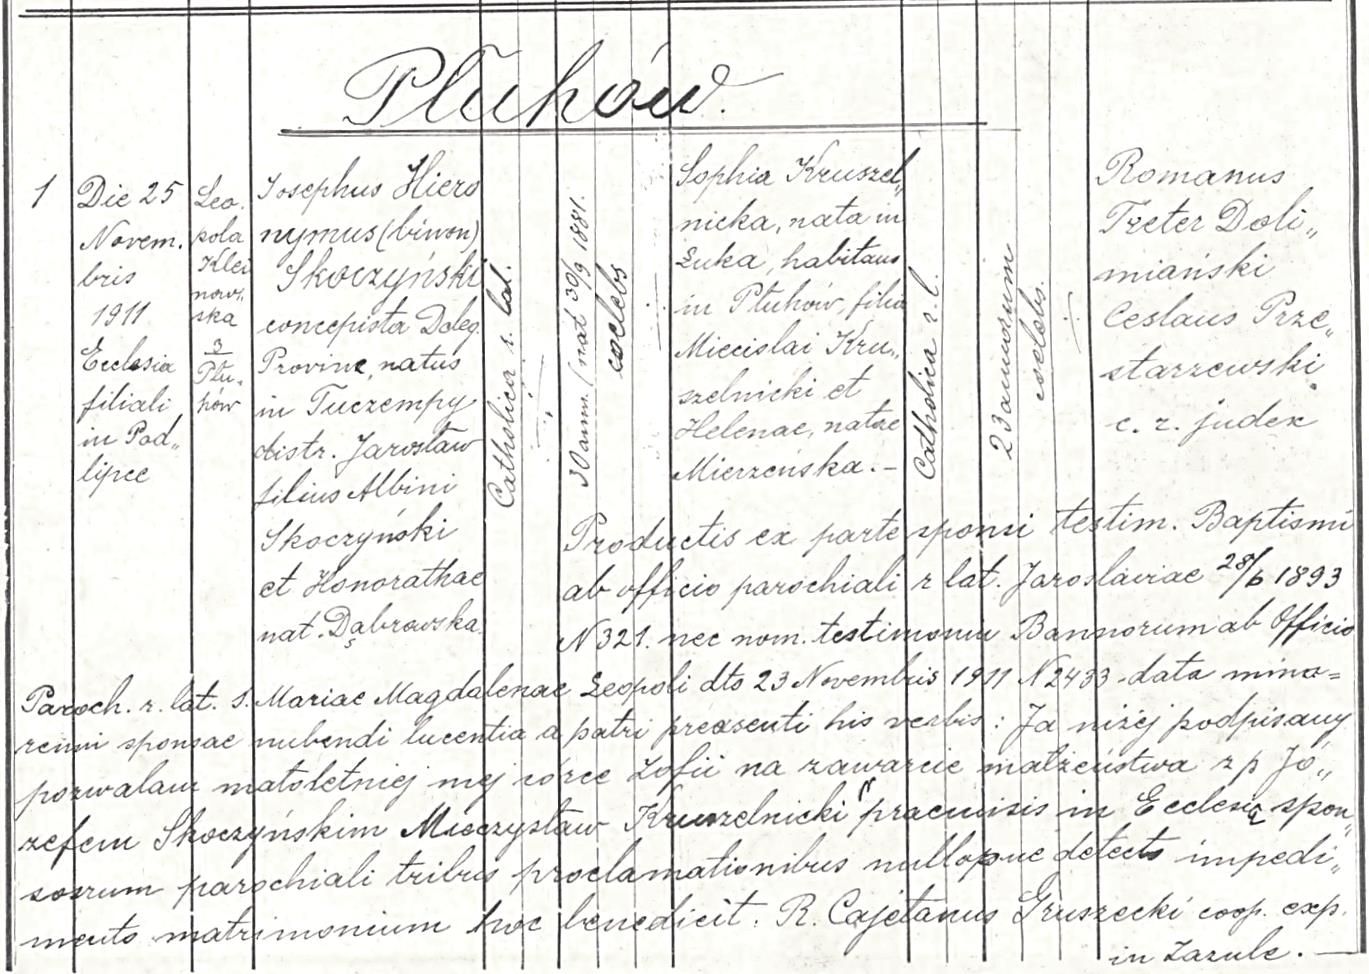 Płuhów.
1
Die 25
Novem.
bris
1911
Ecclesia
filiali
in Pod„
lipce
Leo.
pola
Klei
nows.
ska
3
Płu„
hów
Josephus Hiero
nymus (binom)
Skoczyński
concepista Deleg.
Provinc, natus
in Tuczempy
distr. Jarosław
filius Albini
Skoczyński
et Honorathae
nat. Dąbrowska.
Catholicus r. lat.
30 ann. (nat 30/9 1881.
coelebs
Sophia Kruszel„
nicka, nata in
Łuka, habitans
in Płuhów, filia
Miecislai Kru„
szelnicki et
Helenae, natae
Mierzeńska. –
Catholica r. l.
23 annorum
coelebs.
Romanus
Treter Doli„
miański
Ceslaus Prze„
starzewski
c. r. judex
Productis ex parte sponsi testim. Baptismi
ab officio parochiali r lat. Jaroslaviae 28/6 1893
N 321. nec nom. testimoniu Bannorum ab Officio
Paroch. r. lat. S. Mariae Magdalenae Leopoli dto 23 Novembris 1911 N 2433 data mino=
renni sponsae nubendi lucentia a patri preasenti his verbis: Ja niżej podpisany
pozwalam małoletniej mej córce Zofii na zawarcie małżeństwa z p Jó„
zefem Skoczyńskim Mieczysław Kruszelnicki" praemissis in Ecclesia spon„
sorum parochiali tribus proclamationibus nulloque detecto impedi„
mento matrimonium hoc benedicit. R. Cajetanus Gruszecki coop. exp.
in Zazule. –